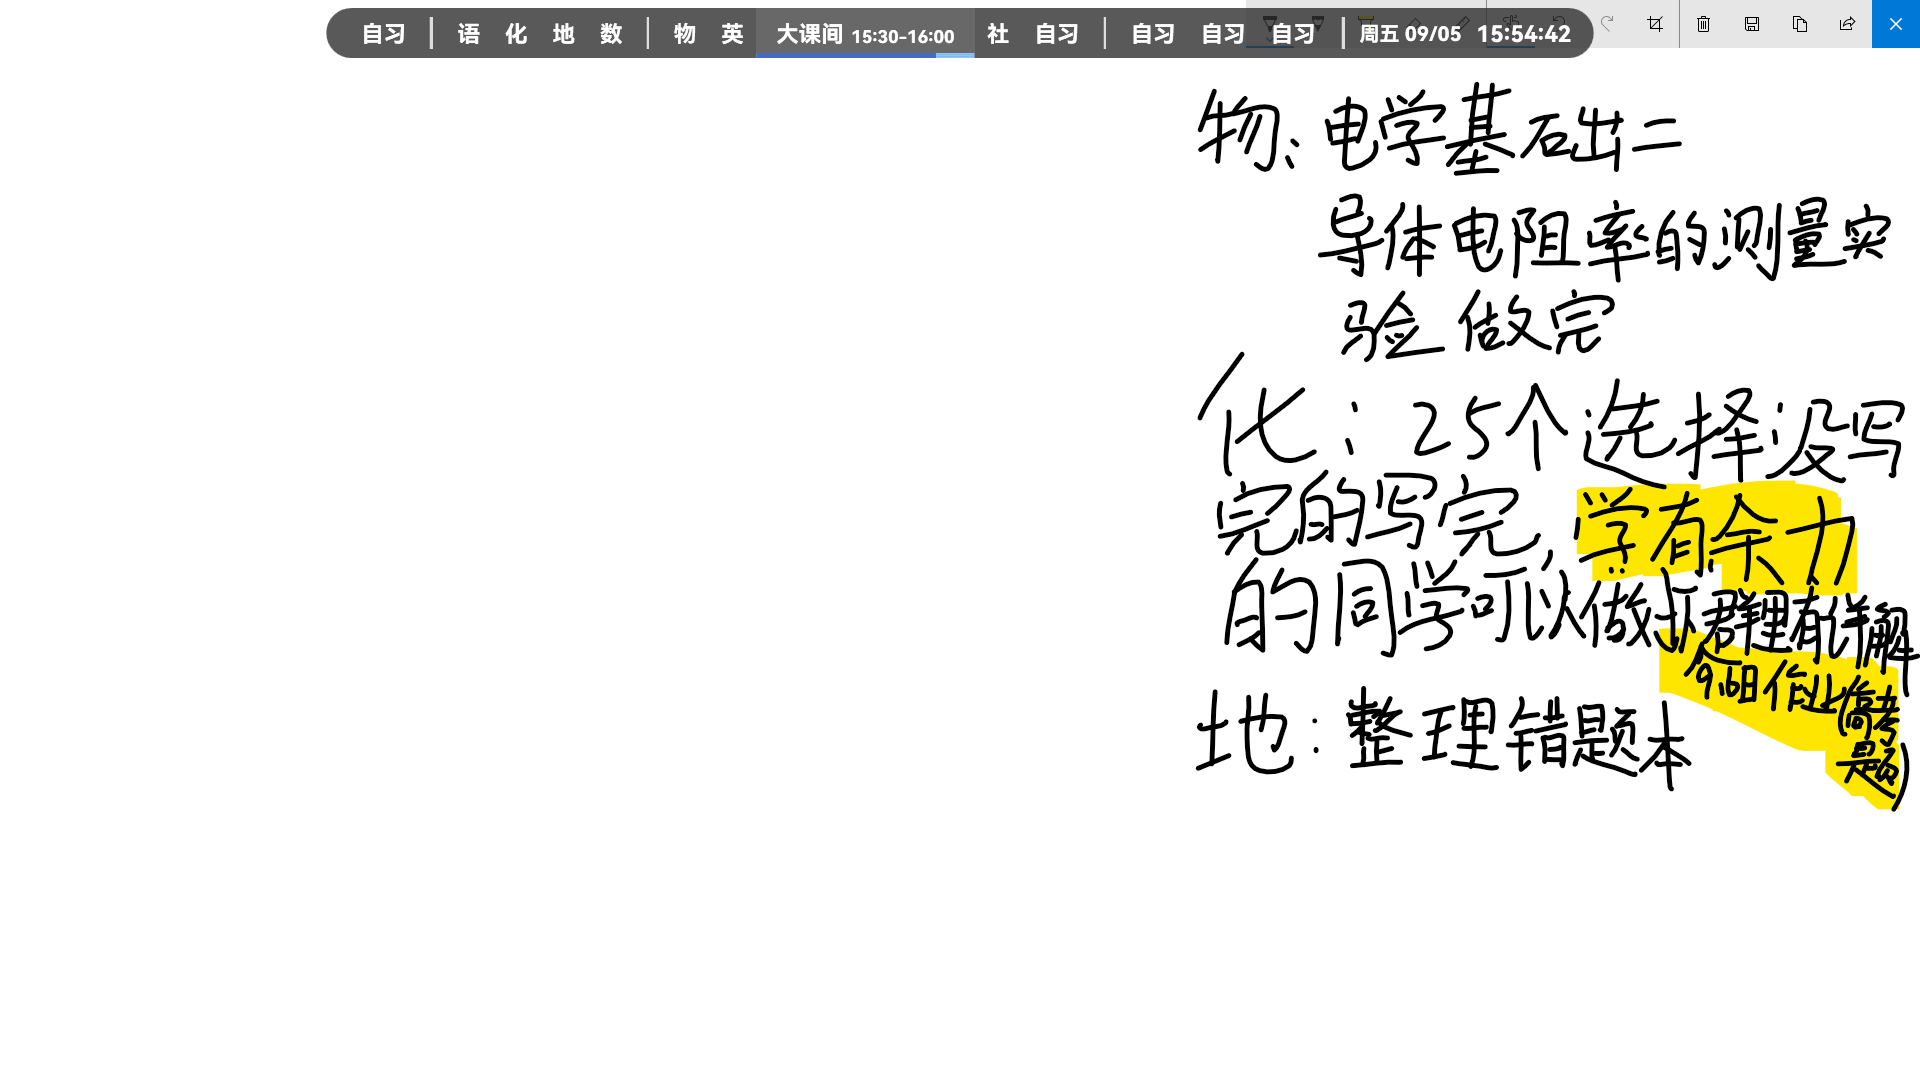 自习 | 语 化 地 数 | 物 英 大课间 15:30-16:00 社 自习 | 自习 自习 自习 | 周五 09/05 15:54:42
物：电学基础二
导体电阻率的测量实
验做完
化：25个选择没写
完的写完，学有余力
的同学可以做 群里有详解
9.6日作业(高考
题)
地：整理错题本